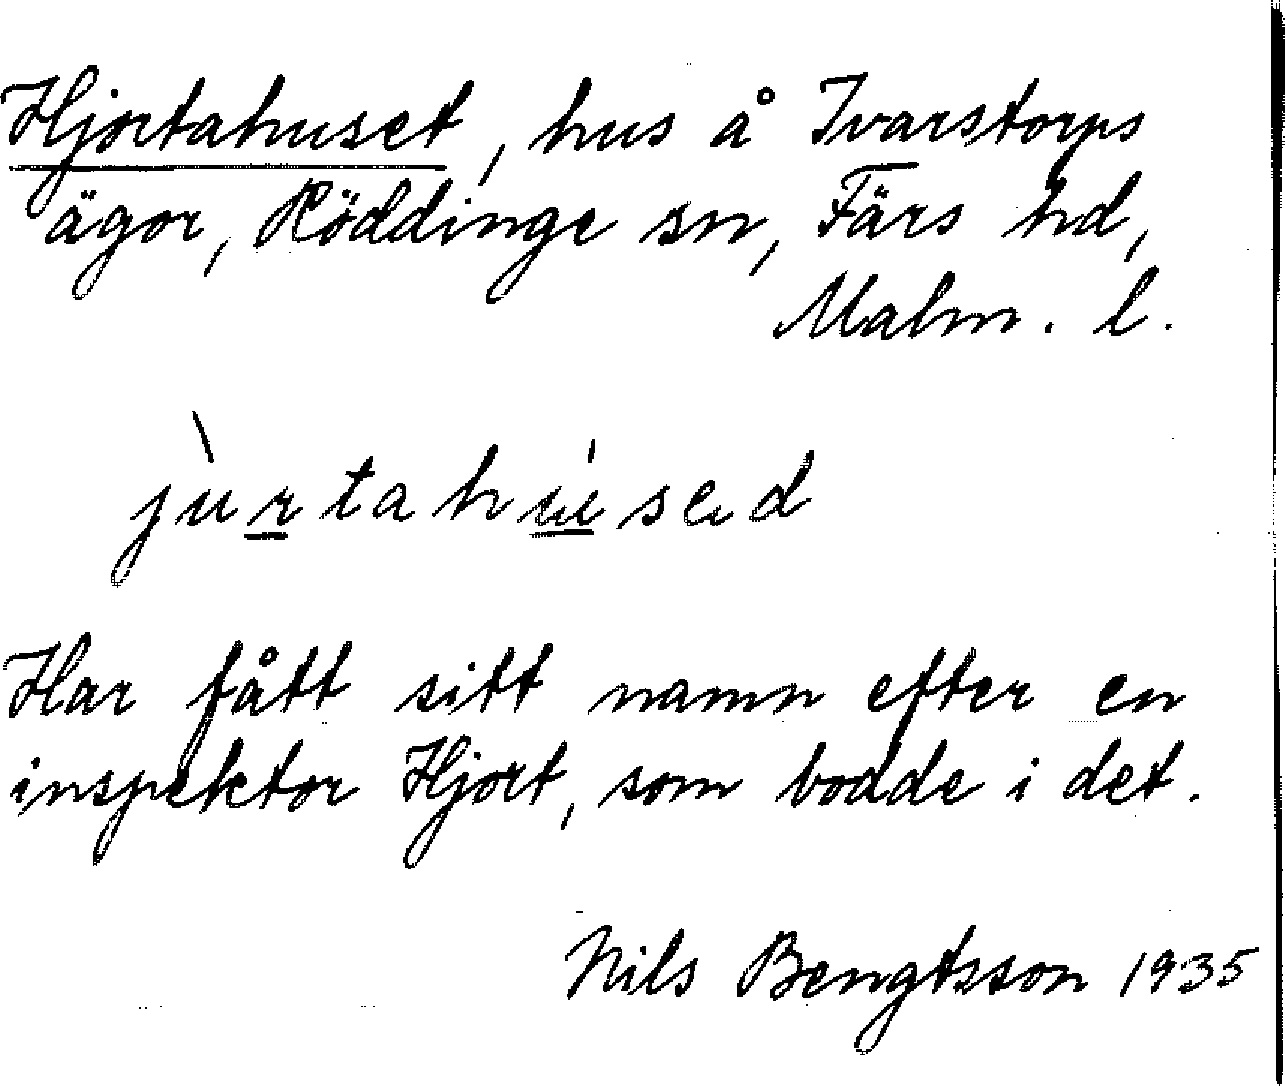 Hjortahuset, hus å Ivarstorps
ägor, Röddinge sn, Färs hd,
Malm. l.
jùrtahúsed
Har fått sitt namn efter en
inspektor Hjort, som bodde i det.
Nils Bengtsson 1935